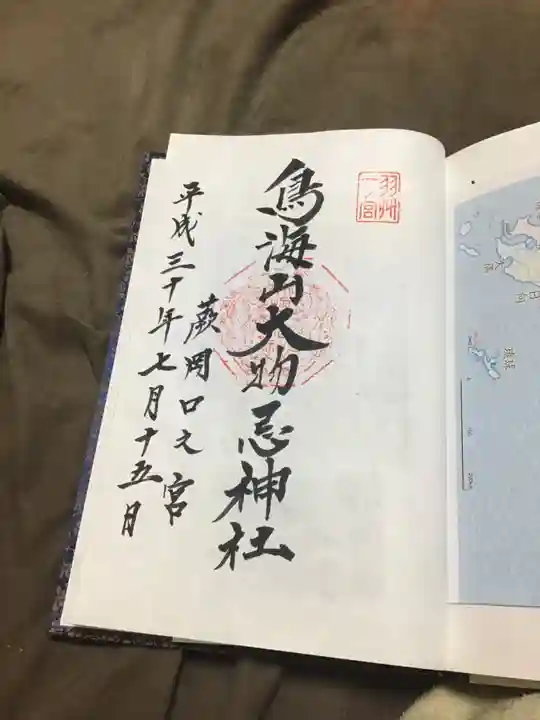 羽州一宮
鳥海山大物忌神社
蕨岡口之宮
平成三十年七月十五日
日向
大隅
琉球